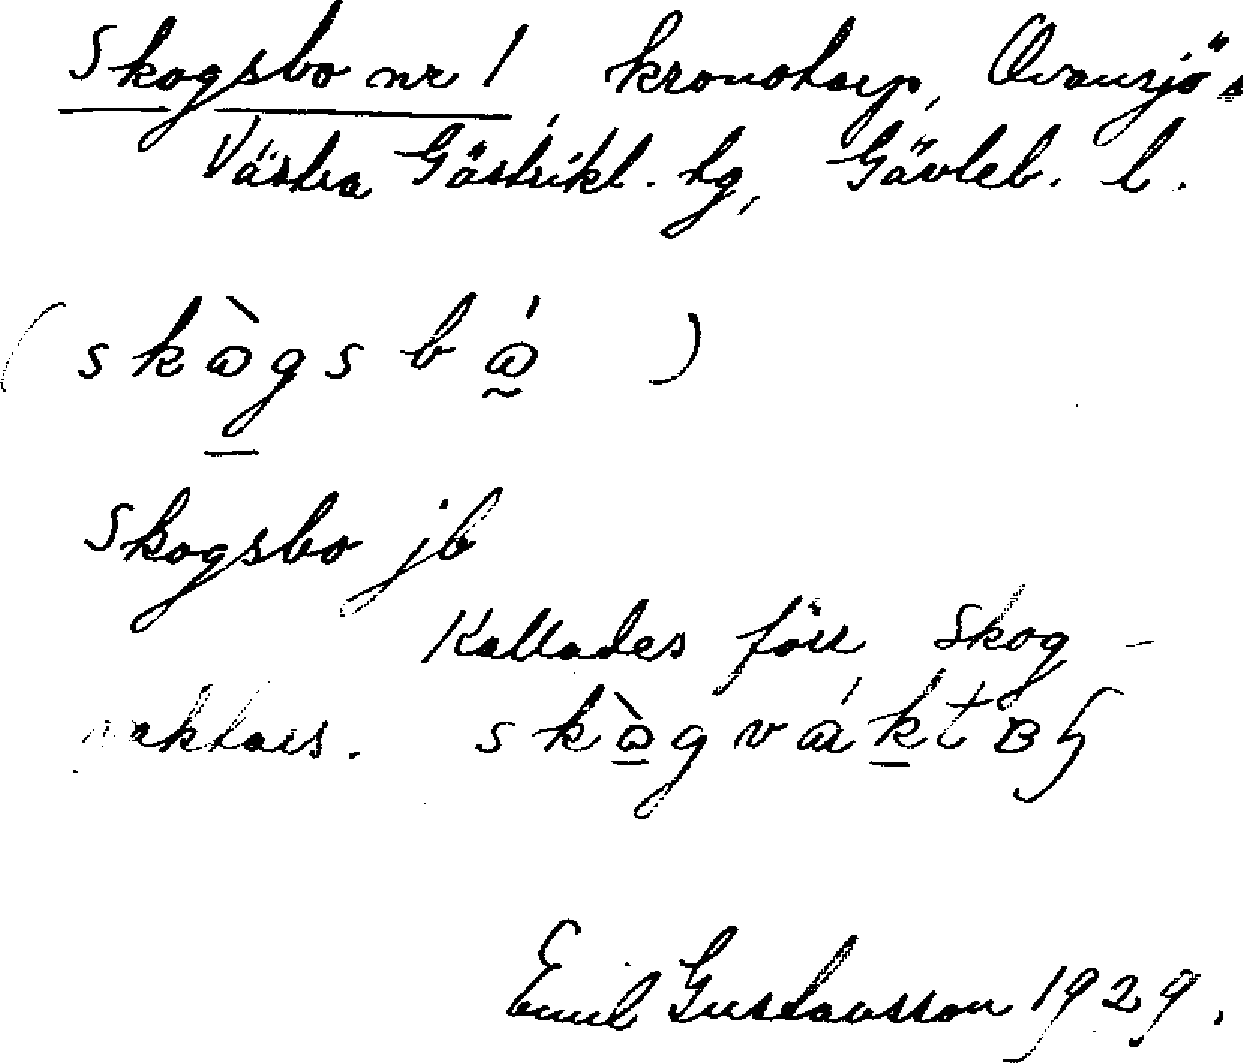 Skogsbo nr 1, kronotorp, Ovansjö s
Västra Gästrikl. tg, Gävleb. l.
(skògsbó)
Skogsbo jb
Kallades förr Skog-
vaktars. skògváktaʂ
Emil Gustavsson 1929.